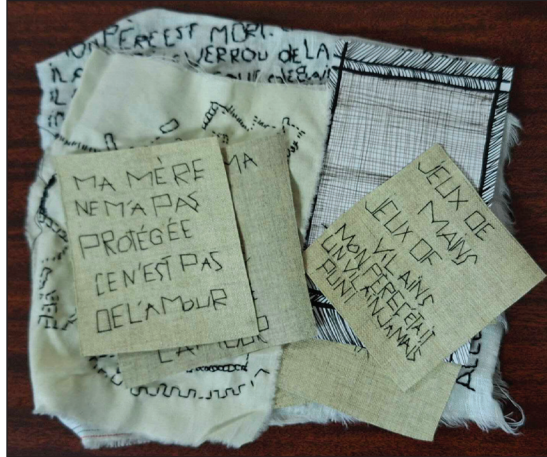 MON PÈRE EST MORT.
VERROU DE LA
MA MÈRE
NE M'A PAS
PROTÉGÉE
CE N'EST PAS
DE L'AMOUR
MA
JEUX DE
MAINS
JEUX DE
VILAINS
MON PÈRE ÉTAIT
UN VILAIN JAMAIS
PUNI